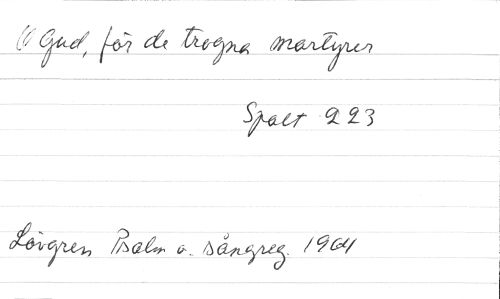 O Gud, för de trogna martyrer
Spalt 223
Lövgren Psalm o. sångreg. 1964